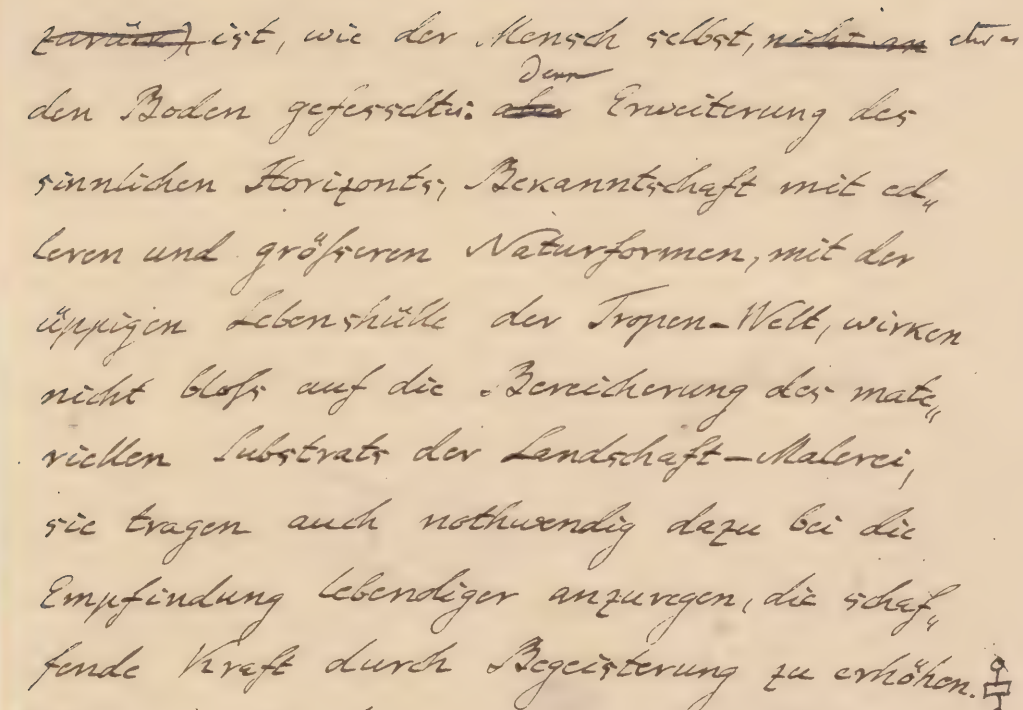 zurück), ist, wie der Mensch selbst, nicht an etwas
den Boden gefesselt: aber Denn Erweiterung des
sinnlichen Horizonts, Bekanntschaft mit ed„
leren und größeren Naturformen, mit der
üppigen Lebenshülle der Tropen-Welt, wirken
nicht bloß auf die Bereicherung des mate„
riellen Substrats der Landschaft-Malerei,
sie tragen auch nothwendig dazu bei die
Empfindung lebendiger anzuregen, die schaf„
fende Kraft durch Begeisterung zu erhöhen.